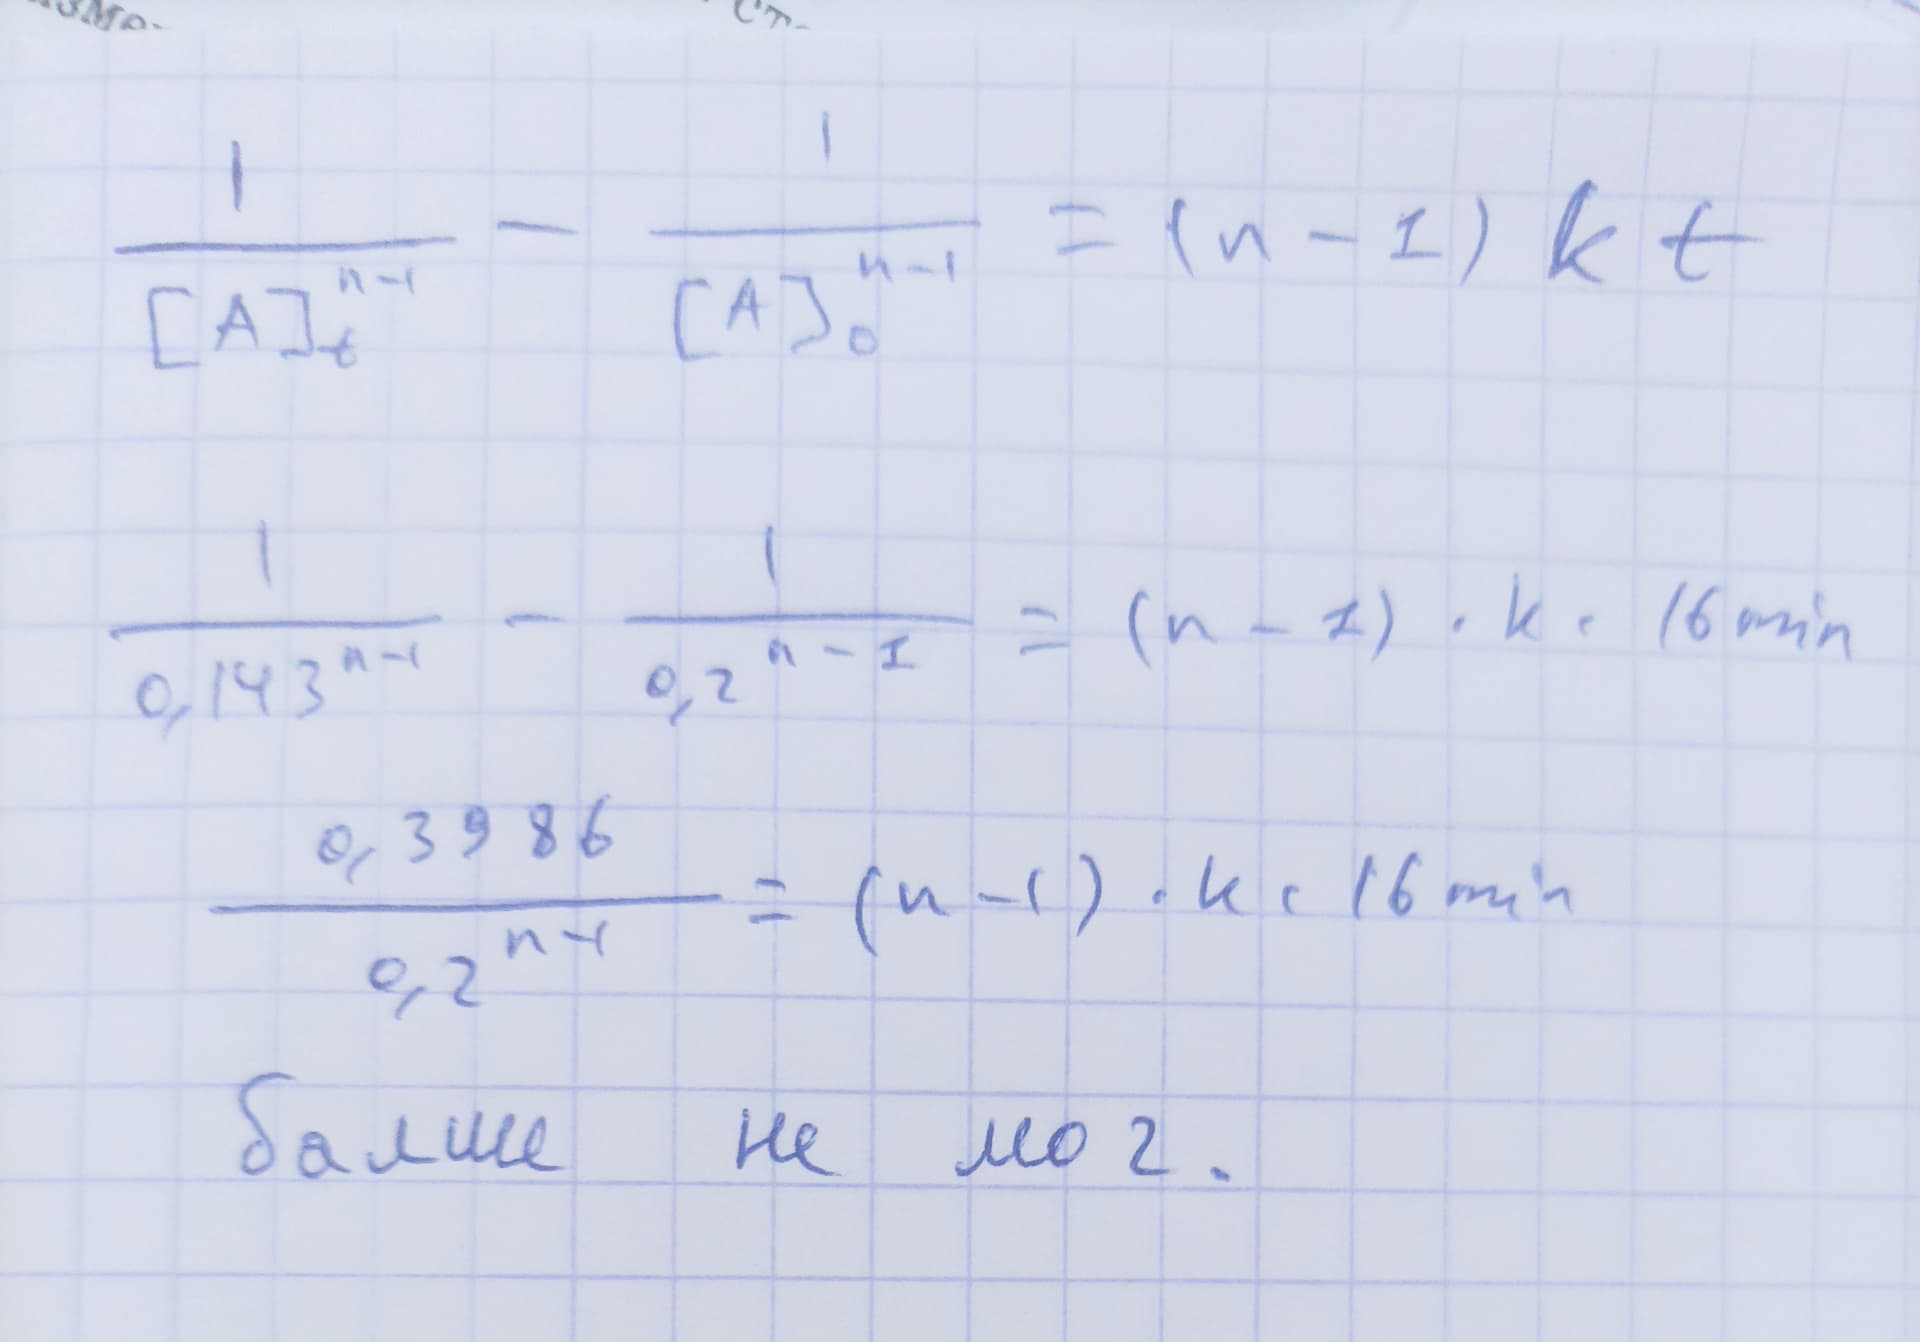 1 / [A]_t^{n-1} - 1 / [A]_0^{n-1} = (n-1) k t
1 / 0,143^{n-1} - 1 / 0,2^{n-1} = (n-1) · k · 16 min
0,3986 / 0,2^{n-1} = (n-1) · k · 16 min
балше не мог.